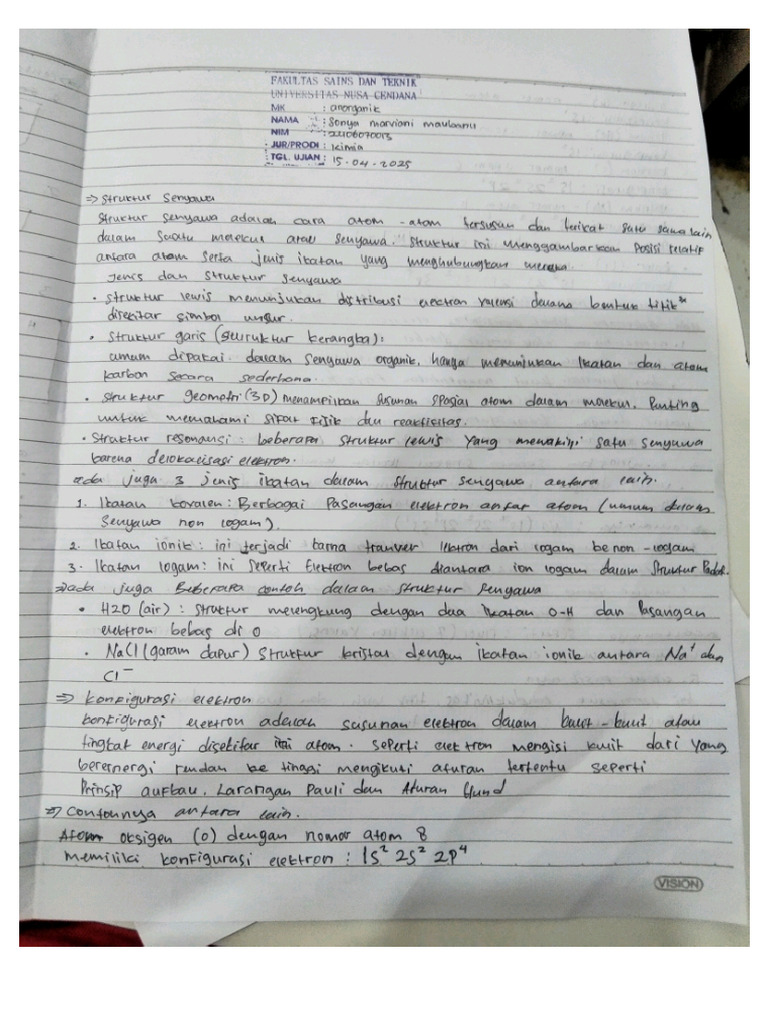 FAKULTAS SAINS DAN TEKNIK
UNIVERSITAS NUSA CENDANA
MK : anorganik
NAMA : Sonya marviani maubanu
NIM : 2106070013
JUR/PRODI : Kimia
TGL. UJIAN : 15-04-2025
⇒ Struktur Senyawa
Struktur senyawa adalah cara atom-atom tersusun dan terikat satu sama lain
dalam suatu molekul atau senyawa. Struktur ini menggambarkan posisi relatif
antara atom serta jenis ikatan yang menghubungkan mereka
Jenis dan Struktur senyawa
• Struktur lewis menunjukan distribusi electron valensi dalam bentuk titik²
disekitar simbol unsur.
• Struktur garis (struruktur kerangka):
umum dipakai dalam senyawa organik, hanya menunjukan Ikatan dan atom
karbon secara sederhana.
• Struktur geometri (3D) menampilkan susunan spasial atom dalam molekul. Penting
untuk memahami sifat fisik dan reaktifitas.
• Struktur resonansi : beberapa struktur lewis yang mewakili satu senyawa
karena delokalisasi elektron.
ada juga 3 jenis ikatan dalam struktur senyawa antara lain.
1. Ikatan kovalen : Berbagai Pasangan elektron antar atom (umum dalam
Senyawa non logam).
2. Ikatan ionik : ini terjadi karna tranver lektron dari logam ke non-logam
3. Ikatan logam : ini seperti Elektron bebas diantara ion logam dalam Struktur Padat.
⇒ ada juga Beberapa contoh dalam struktur senyawa
• H2O (air) : Struktur melengkung dengan dua ikatan O-H dan Pasangan
elektron bebas di O
• NaCl (garam dapur) Struktur kristal dengan ikatan ionik antara Na⁺ dan
Cl⁻
⇒ konfigurasi elektron
konfigurasi elektron adalah susunan elektron dalam kulit-kulit atau
tingkat energi disekitar inti atom. seperti elektron mengisi kulit dari yang
berernergi rendah ke tinggi mengikuti aturan tertentu seperti
Prinsip aufbau, Larangan Pauli dan Aturan Hund
⇒ Contohnya antara lain.
Atom oksigen (O) dengan nomor atom 8
memiliki konfigurasi elektron : 1s² 2s² 2p⁴
VISION